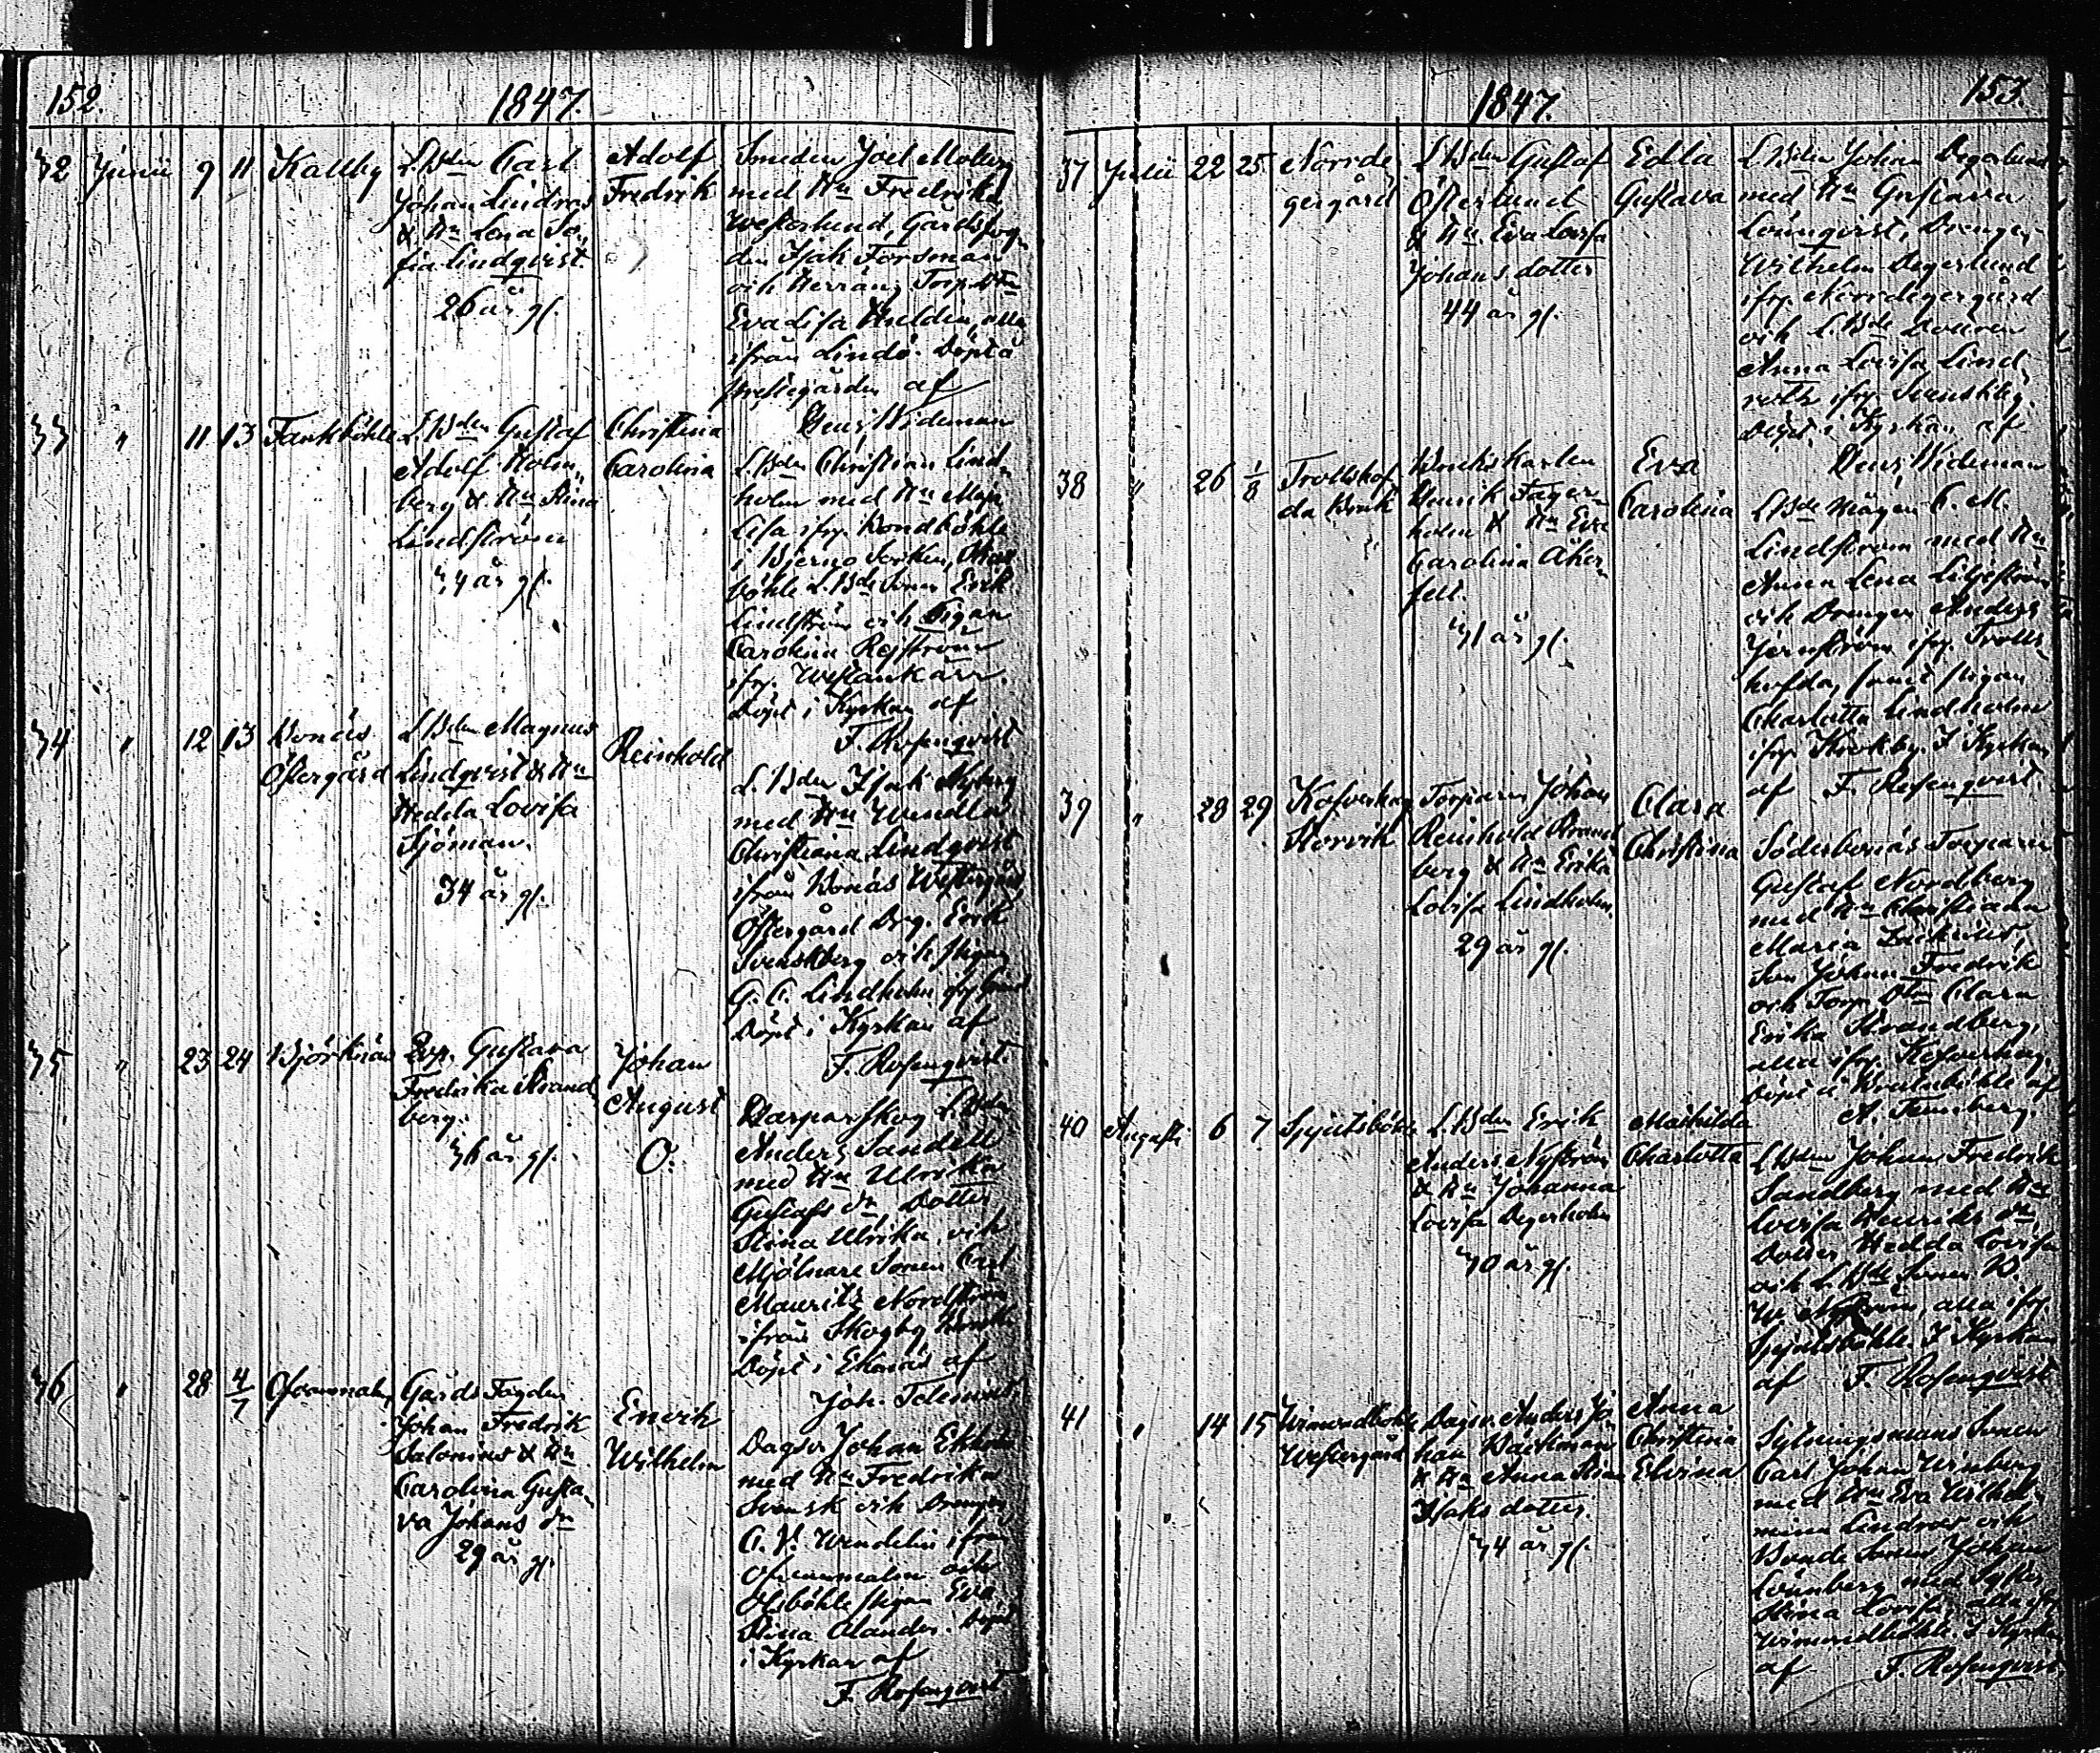 152.
1847.
32 Junii 9 11 Kallby
L.Bden Carl
Johan Lindros
& Hu Lena So,
fia Lindqvist.
26 år gl.
Adolf
Fredrik
Smeden Joel Moberg
med Hu Fredrika
Westerlund, Gårdsfog,
den Isak Forsman
och Herräng Torp. Dtn
Eva Lisa alla
ifrån Lindö. Döpt å
prestegården af
Henr. Wideman
33 " 11 13 Fankböhle
L.Bden Gustaf
Adolf Holm,
berg & Hu Stina
Lindström
34 år gl.
Christina
Carolina
L.Bden Christian Lind,
holm med Hu Maja
Lisa ifr.
i Bjerno Socken,
böhle L.Bde Sonen Erik
Lindström och Pigan
Carolina
ifr. Westankärr.
Döpt i Kyrkan af
F. Rosenqvist
34 " 12 13 Bonäs
Östergård
L.Bden Magnus
Lindqvist & Hu
Hedda Lovisa
Sjöman.
34 år gl.
Reinhold
L.Bden Isak Nyberg
med Hu Wendla
Christiana Lindqvist
ifrån Bonäs Westergård,
Östergård Drg. Erik
Svenskberg och pigan
G. C. Lindholm
Döpt i Kyrkan af
F. Rosenqvist
35 " 23 24 Björknäs
Gustava
Fredrika Strand,
berg.
36 år gl.
Johan
August
O:
Harparskog L.Bden
Anders Sandell
med Hu Ulrika
Gustafs dr, Dotter
Stina Ulrika och
Mjölnare Sonen Carl
Mauritz Nordström
ifrån Skogby
Döpt i Ekenäs af
Joh.
36 " 28 4/7
Gårds Fogden
Johan Fredrik
Salonius & Hu
Carolina Gusta,
va Johans dr
29 år gl.
Enrik
Wilhelm
Dagsv. Johan Ekholm
med Hu Fredrika
Svensk och Drengen
Wendelin ifrån
och
Olsböhle pigan Eva
Stina Olander. Döpt
i Kyrkan af
F. Rosenqvist
153.
1847.
37 Julii 22 25 Norrde
gergård
L.Bden Gustaf
Österlund
& Hu Eva Lovisa
Johans dotter
44 år gl.
Edla
Gustava
L.Bden Johan Degerlund
med Hu Gustava
Lönnqvist, Drengen
Wilhelm Degerlund
ifr. Norrdegergård
och L.Bde
Anna Lovisa Lind,
roth ifr. Svenskby.
Döpt i Kyrkan af
Henr. Wideman
38 " 26 1/8 Trollshof
da Bruk
Bruks Karlen
Henrik Fager,
holm & Hu Eva
Carolina Åker,
felt.
31 år gl.
Eva
Carolina
L.Bde Mågen C. M.
Lindström med Hu
Anna Lena Liljeström
och Drengen Anders
Jernström ifr. Trolls,
hofda, samt pigan
Charlotta Lindholm
ifr. Krokby. I Kyrkan
af F. Rosenqvist
39 " 28 29 Kofverhag
Storvik
Torparen Johan
Reinhold Strand
berg & Hu Erika
Lovisa Lindholm.
29 år gl.
Clara
Christina
Söderbonäs Torparen
Gustaf Nordberg
med Hu Christiana
Maria
Son Johan Fredrik
och Torp. Dtn Clara
Erika Strandberg,
alla ifr. Kofverhag.
Döpt i af
A.
40 Augusti 6 7 Spjutsböhle
L.Bden Erik
Anders Nyström
& Hu Johanna
Lovisa Degerholm
30 år gl.
Mathilda
Charlotta
L.Bden Johan Fredrik
Sandberg med Hu
Lovisa Henriks dr,
Dotter Hedda Lovisa
och L.Bde Sonen
W. alla ifr.
Spjutsböhle. I Kyrkan
af F. Rosenqvist
41 " 14 15
Westergård
Dagsv. Anders Jo,
han Bäckman
& Hu Anna Stina
Isaks dotter.
34 år gl.
Anna
Christina
Elvina
Sytningsmans Sonen
Carl Johan Wimberg
med Hu Eva Wilhel,
mina Lindros och
Bonde Sonen Johan
Lönnberg med Syster
Stina Lovisa, alla ifr.
I Kyrkan
af F. Rosenqvist